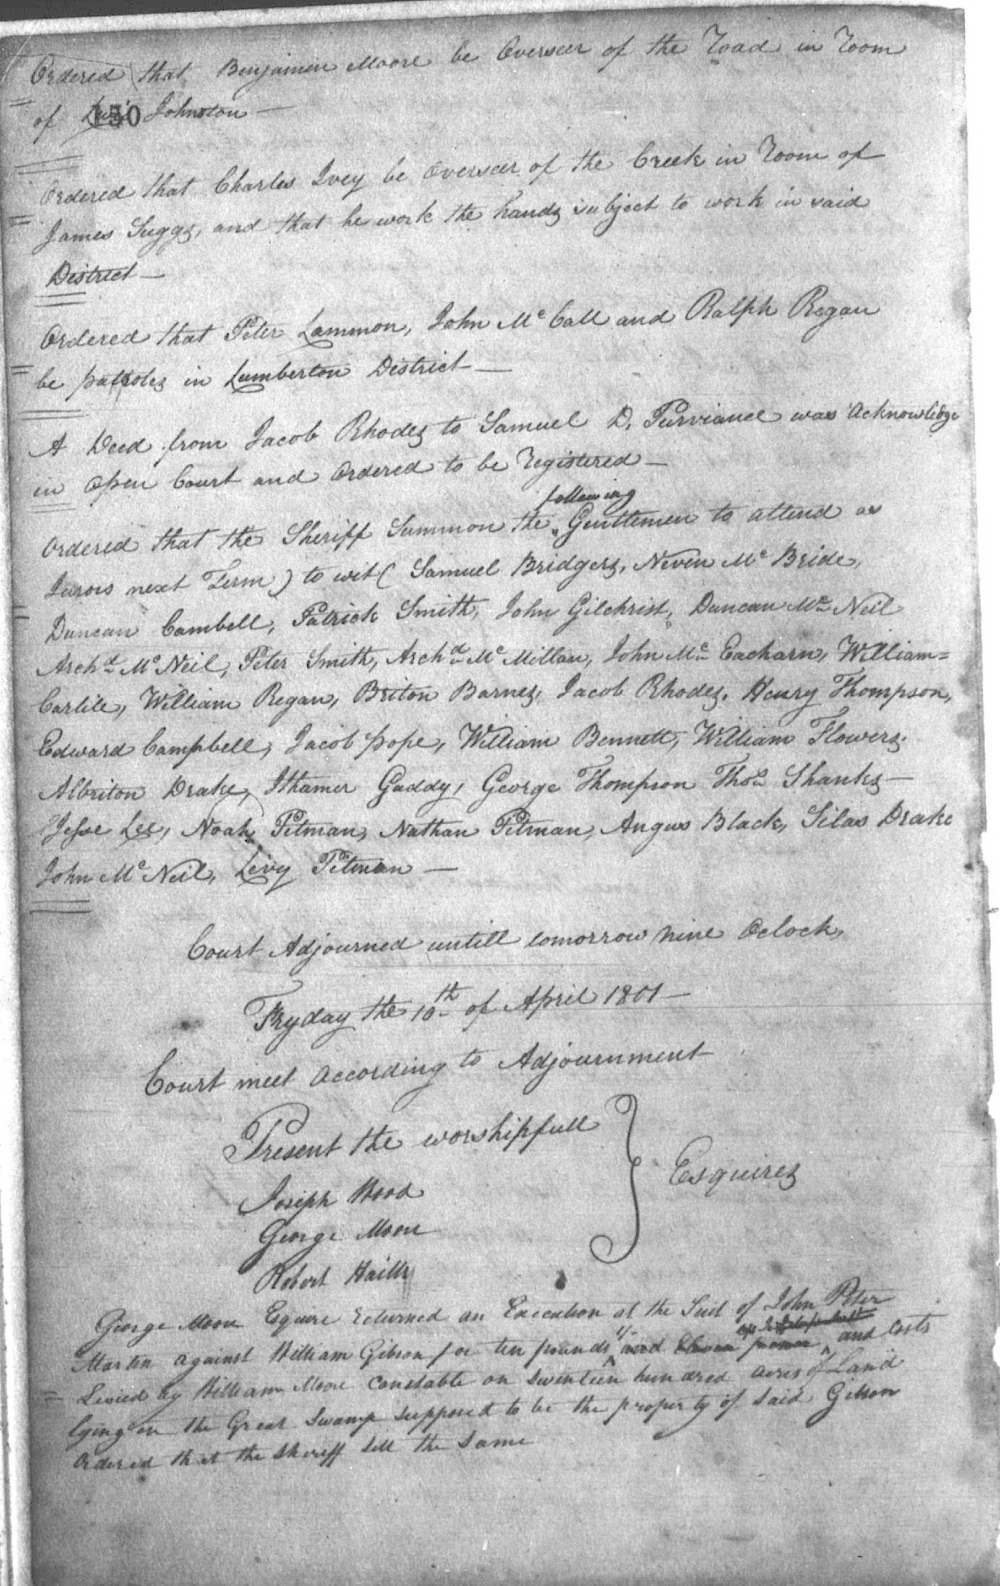 Ordered that Benjamin Moore be Overseer of the Road in Room
of 150 Johnston —
Ordered that Charles Ivey be Overseer of the Creek in Room of
James Suggs, and that he work the hands subject to work in said
District —
Ordered that Peter Lammon, John Mc Call and Ralph Regan
be patroles in Lumberton District —
A Deed from Jacob Rhodes to Samuel D. Purviance was Acknowledge
in Open Court and Ordered to be Registered —
following
Ordered that the Sheriff Summon the Gentlemen to attend as
Jurors next Term) to wit ( Samuel Bridgers, Neven Mc Bride,
Duncan Cambell, Patrick Smith, John Gilchrist, Duncan Mc Neil
Archd Mc Neil, Peter Smith, Archd Mc Millan, John Mc Eacharn, William=
Carlile, William Regan, Briton Barnes, Jacob Rhodes, Henry Thompson,
Edward Campbell, Jacob pope, William Bennett, William Flowers.
Albriton Drake, Ithamer Gaddy, George Thompson Thos Shanks —
Jesse Lee, Noah Pitman, Nathan Pitman, Angus Black, Silas Drake
John Mc Neil, Levy Pitman —
Court Adjourned untill tomorrow nine Oclock,
Fryday the 10th of April 1801 —
Court meet according to Adjournment
Present the worshipfull
Joseph Wood
George Moore
Robert Hails
Esquires
George Moore Esquire returned an Execution at the Suit of John Peter
Martin against William Gibson for ten pounds 1/- and Costs
Levied by William Moore Constable on Seventeen hundred acres of Land
lying on the Great Swamp supposed to be the property of said Gibson
Ordered that the Sheriff sell the same